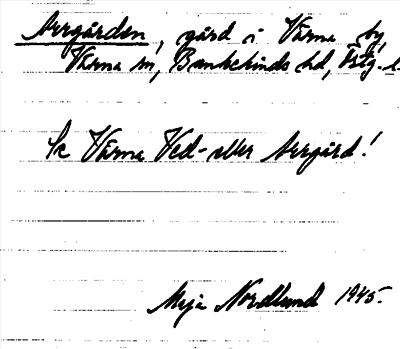 Avrgården, gård i Värna by,
Värna sn, Bankekinds hd, Östg. l.
Se Värna Ved- eller Avrgård!
Maja Nordlund 1945.